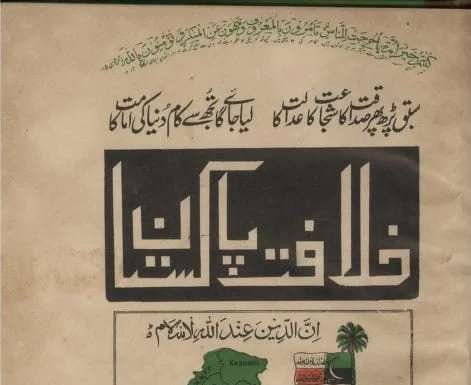 كُنْتُمْ خَيْرَ اُمَّةٍ اُخْرِجَتْ لِلنَّاسِ تَأْمُرُوْنَ بِالْمَعْرُوْفِ وَتَنْهَوْنَ عَنِ الْمُنْكَرِ وَتُؤْمِنُوْنَ بِاللّٰهِ
سبق پڑھ پھر صداقت کا شجاعت کا عدالت کا لیا جائے گا تُجھ سے کام دُنیا کی امامت کا
خلافت پاکستان
اِنَّ الدِّیْنَ عِنْدَ اللّٰہِ الْاِسْلَام
KASHMIR